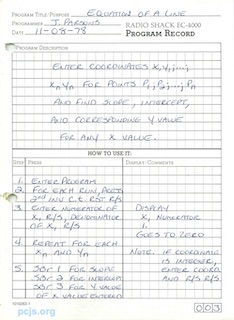 PROGRAM TITLE/PURPOSE EQUATION OF A LINE
PROGRAMMER J. PARSONS RADIO SHACK EC-4000
DATE 11-08-78 PROGRAM RECORD
PROGRAM DESCRIPTION
ENTER COORDINATES X,Y,; ... ;
XnYn FOR POINTS P1; P2; ... ; Pn
AND FIND SLOPE, INTERCEPT,
AND CORRESPONDING Y VALUE
FOR ANY X VALUE.
HOW TO USE IT:
STEP PRESS DISPLAY/COMMENTS
1. ENTER PROGRAM
2. FOR EACH RUN, PRESS
2nd INV C.t RST R/S
3. ENTER NUMERATOR OF DISPLAY
X, R/S, DENOMINATOR X, NUMERATOR
OF X, R/S 1.
GOES TO ZERO
4. REPEAT FOR EACH
Xn AND Yn NOTE. IF COORDINATE
IS INTEGER,
5. SBr 1 FOR SLOPE ENTER COORD.
SBr 2 FOR INTERCEP AND R/S R/S
SBr 3 FOR Y VALUE
OF X VALUE ENTERED
pcjs.org
003